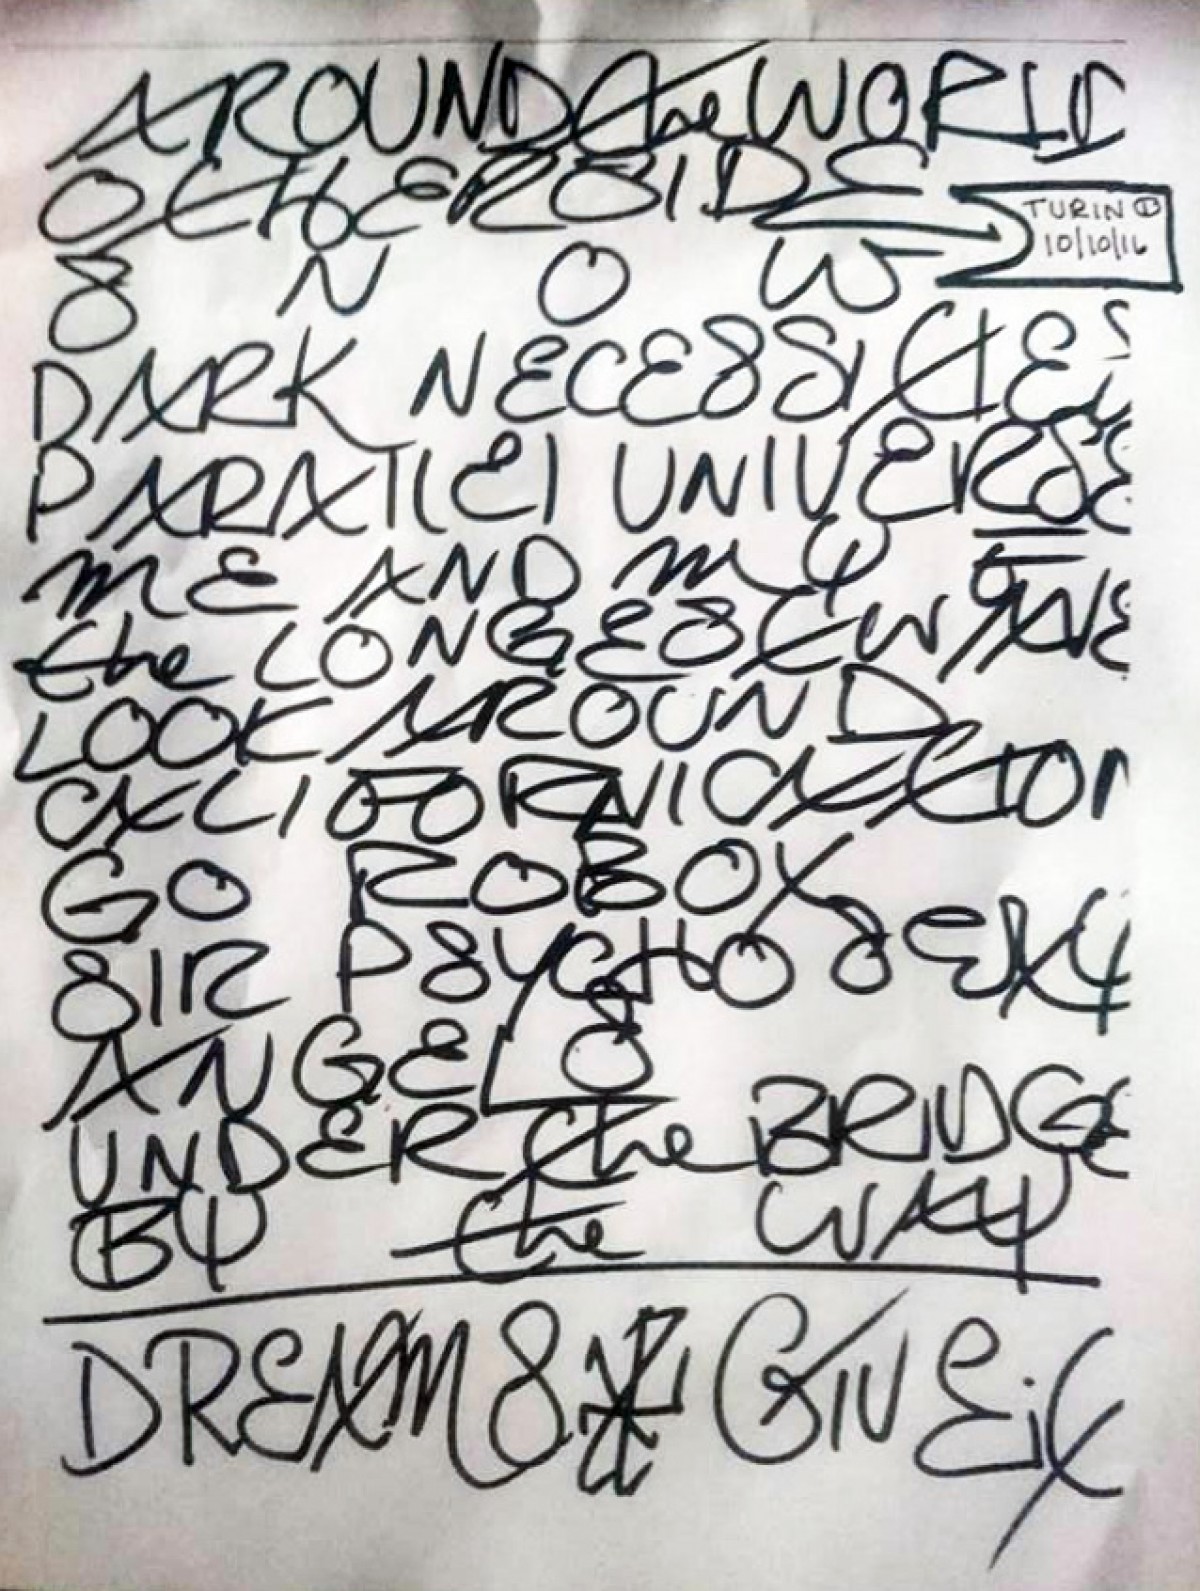 AROUND the WORLD
OTHERSIDE
TURIN ①
10/10/16
SNOW
DARK NECESSITIES
PARALLEL UNIVERSE
ME AND MY
the LONGEST WAVE
LOOK AROUND
CALIFORNICATION
GO ROBOT
SIR PSYCHO SEXY
ANGELS
UNDER the BRIDGE
BY the WAY
DREAMS
GIVE it